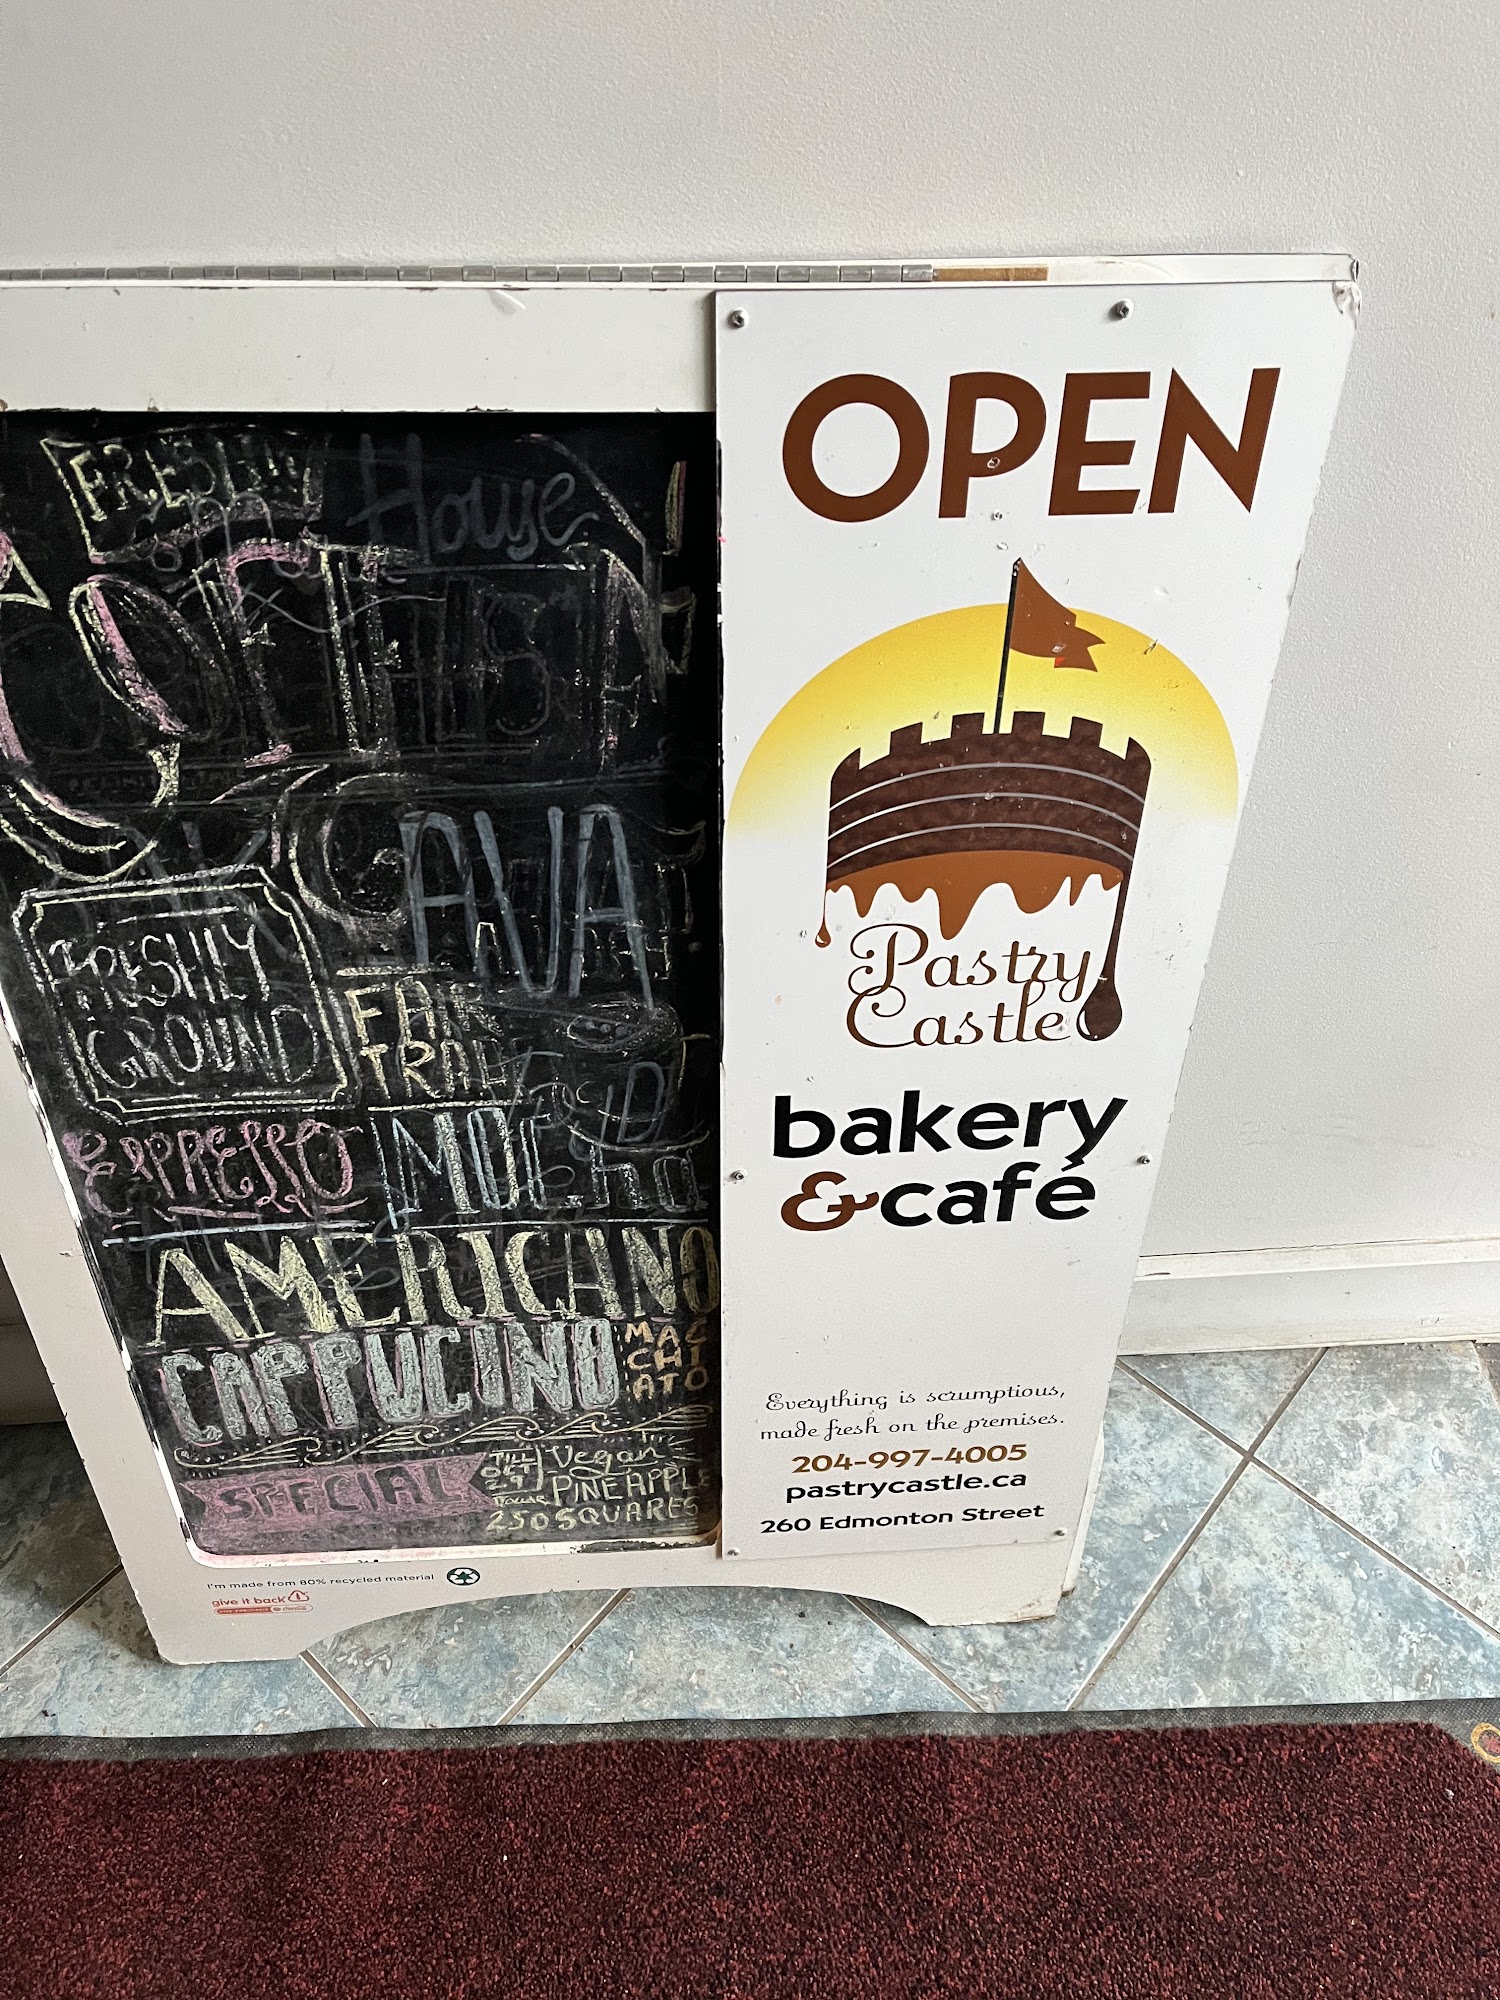 FRESHLY
House
COFFEE
JAVA
FRESHLY
GROUND
FAIR
TRADE
ESPRESSO
MOCha
AMERICANO
CAPPUCINO
MAC
CHI
ATO
SPECIAL
TILL
OCT
29
Vegan
PINEAPPLE
SQUARES
2.50
I'm made from 80% recycled material
give it back
OPEN
Pastry
Castle
bakery
&café
Everything is scrumptious,
made fresh on the premises.
204-997-4005
pastrycastle.ca
260 Edmonton Street